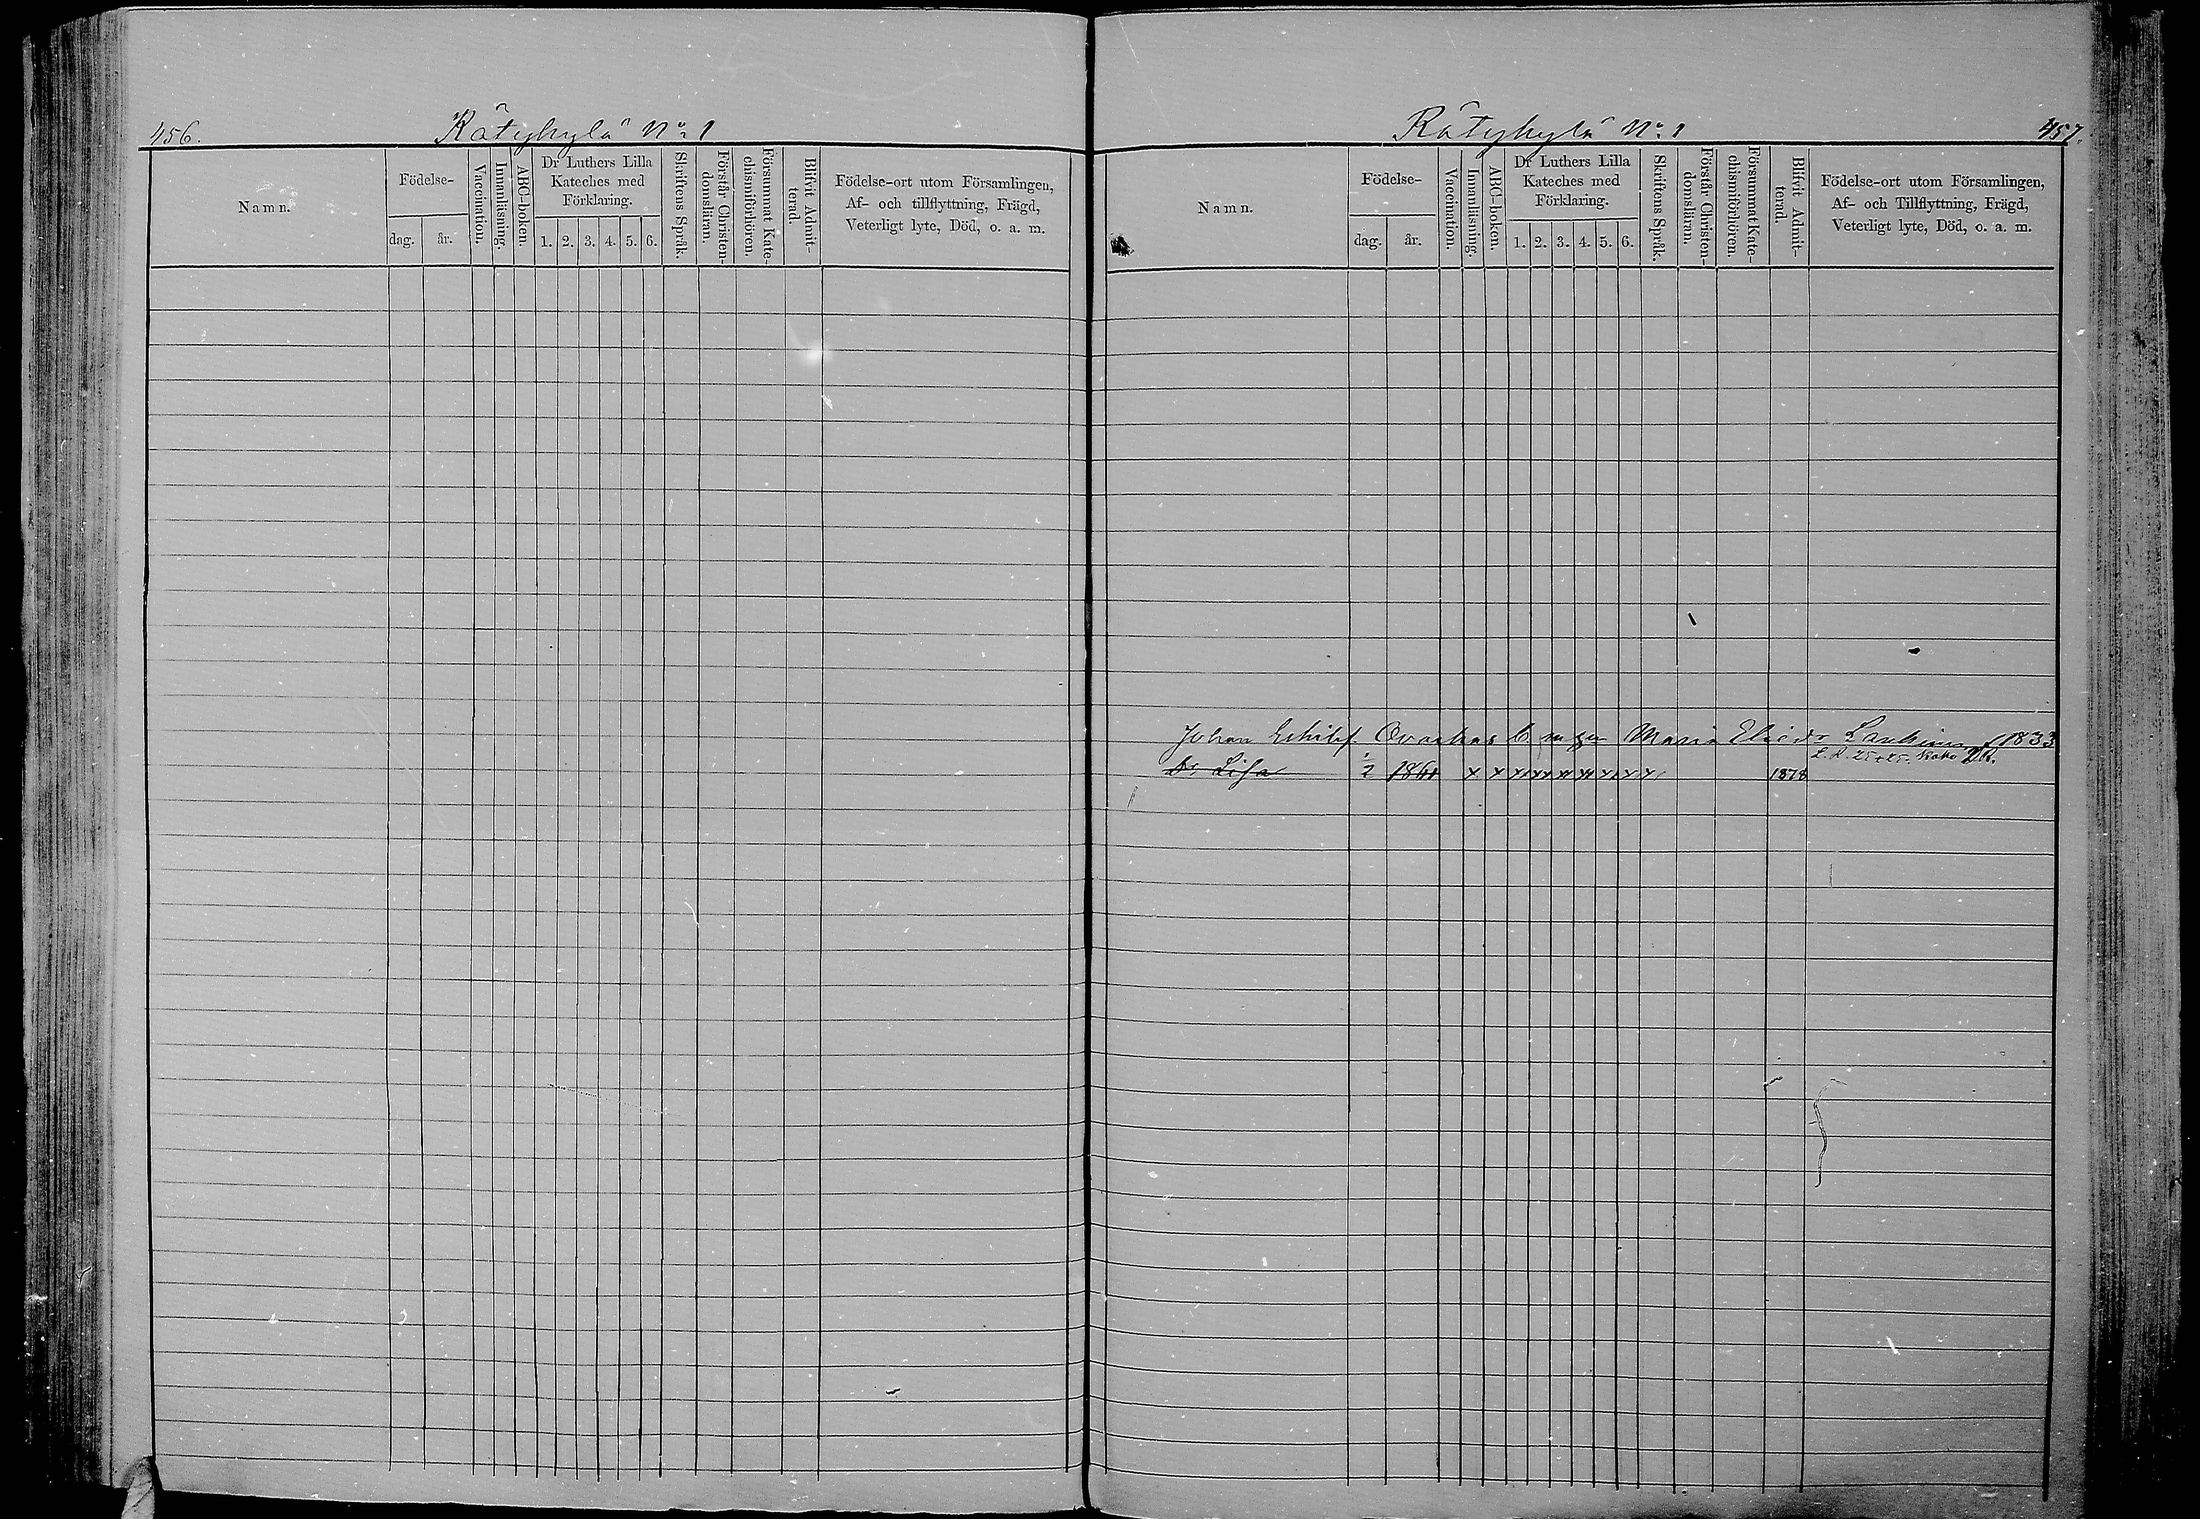 456. Rätykylä No 1
Namn.
Födelse-
dag. år.
Vaccination.
Innanläsning.
ABC-boken.
Dr Luthers Lilla
Kateches med
Förklaring.
1. 2. 3. 4. 5. 6.
Skriftens Språk.
Förstår Christen-
domsläran.
Försummat Kate-
chismiförhören.
Blifvit Admit-
terad.
Födelse-ort utom Församlingen,
Af- och tillflyttning, Frägd,
Veterligt lyte, Död, o. a. m.
Rätykylä No 1 457.
Namn.
Födelse-
dag. år.
Vaccination.
Innanläsning.
ABC-boken.
Dr Luthers Lilla
Kateches med
Förklaring.
1. 2. 3. 4. 5. 6.
Skriftens Språk.
Förstår Christen-
domsläran.
Försummat Kate-
chismiförhören.
Blifvit Admit-
terad.
Födelse-ort utom Församlingen,
Af- och Tillflyttning, Frägd,
Veterligt lyte, Död, o. a. m.
Johan Maria 1833
Dr. Lisa 2 1861 x x x x x x x x x x 1878